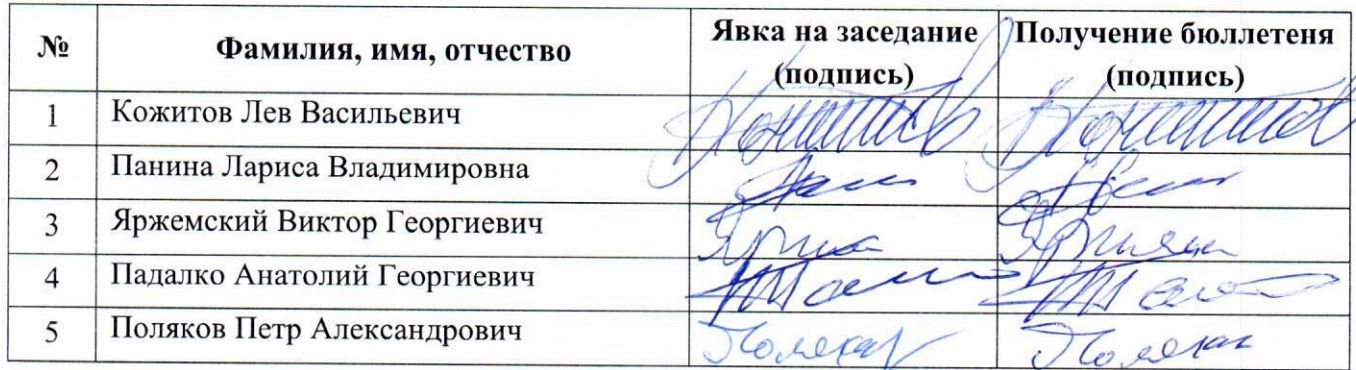 № Фамилия, имя, отчество Явка на заседание (подпись) Получение бюллетеня (подпись)
1 Кожитов Лев Васильевич
2 Панина Лариса Владимировна
3 Яржемский Виктор Георгиевич
4 Падалко Анатолий Георгиевич
5 Поляков Петр Александрович